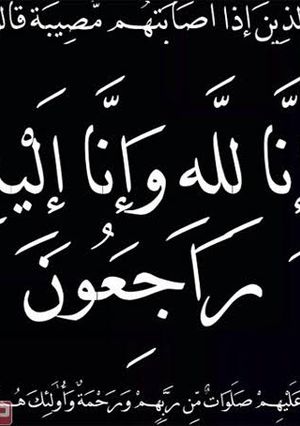 لذين إذا أصابتهم مصيبة قال
إنَّا لله وإنَّا إليـ
رَاجعُونَ
عليهم صلوات مِّن رَّبِّهم ورحمةٌ وأُولئك هم